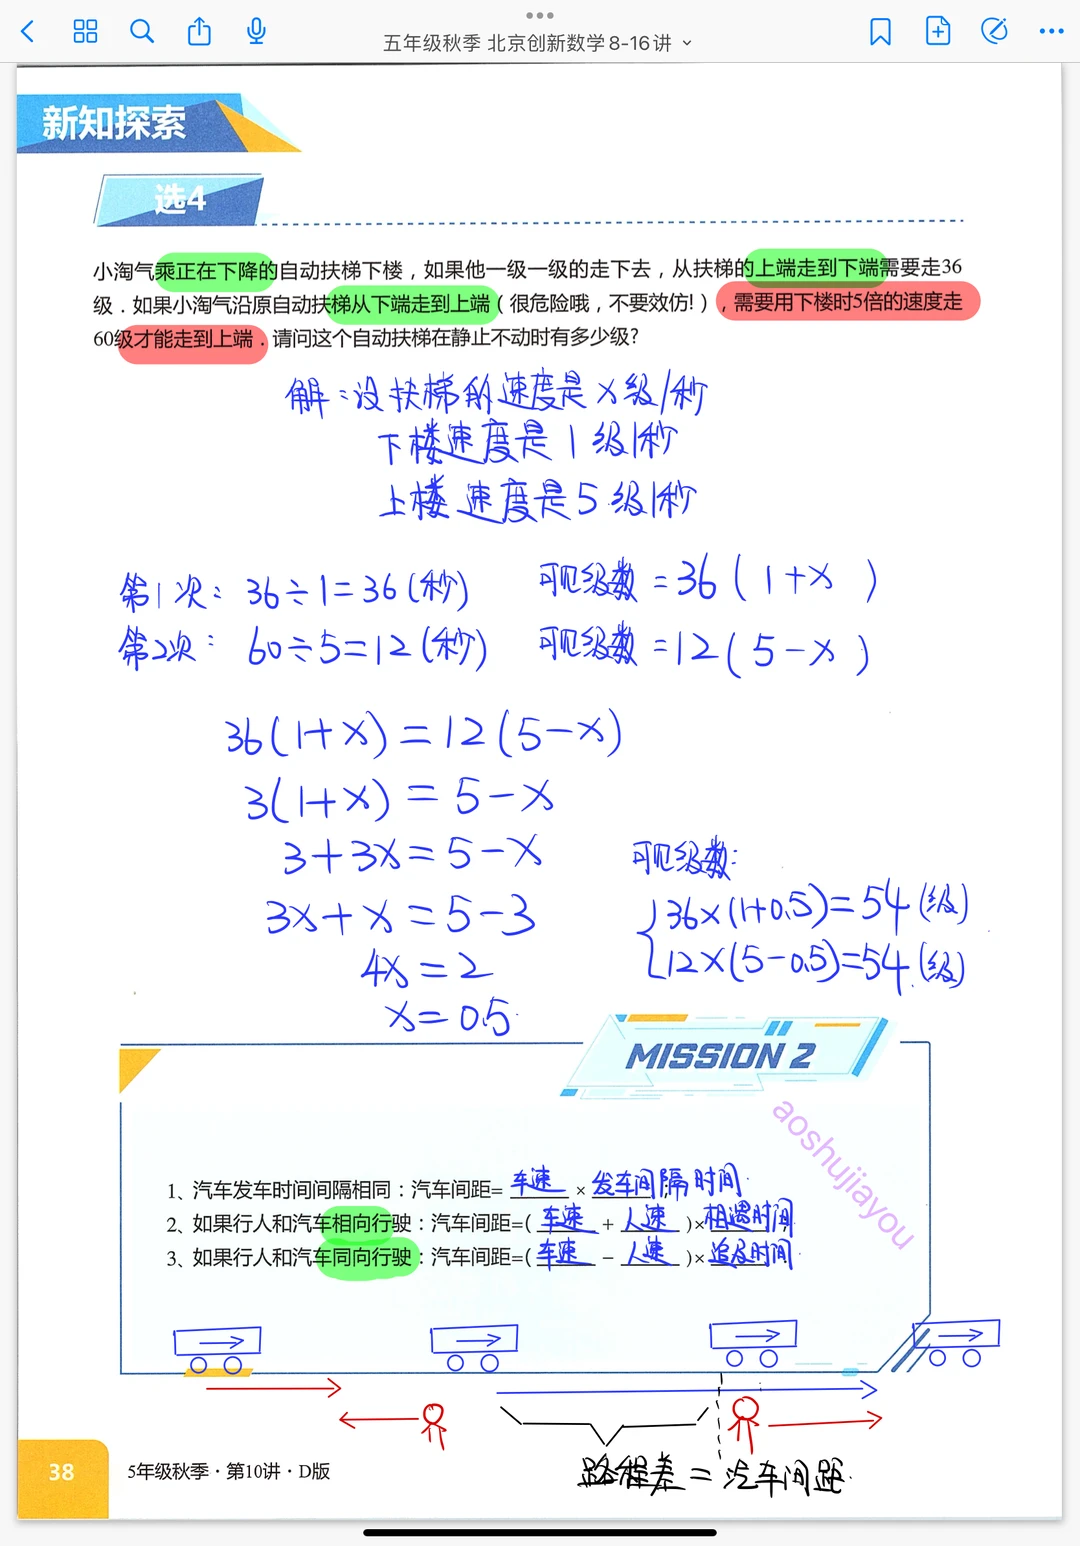 五年级秋季 北京创新数学8-16讲
新知探索
选4
小淘气乘正在下降的自动扶梯下楼，如果他一级一级的走下去，从扶梯的上端走到下端需要走36
级．如果小淘气沿原自动扶梯从下端走到上端（很危险哦，不要效仿!），需要用下楼时5倍的速度走
60级才能走到上端．请问这个自动扶梯在静止不动时有多少级?
解：设扶梯的速度是x级/秒
下楼速度是1级/秒
上楼速度是5级/秒
第1次： 36÷1=36(秒) 可见级数=36(1+x)
第2次： 60÷5=12(秒) 可见级数=12(5-x)
36(1+x)=12(5-x)
3(1+x)=5-x
3+3x=5-x
3x+x=5-3
4x=2
x=0.5
可见级数：
36×(1+0.5)=54(级)
12×(5-0.5)=54(级)
MISSION 2
1、汽车发车时间间隔相同：汽车间距=车速×发车间隔时间
2、如果行人和汽车相向行驶：汽车间距=(车速+人速)×相遇时间
3、如果行人和汽车同向行驶：汽车间距=(车速-人速)×追及时间
aoshujiayou
路程差=汽车间距
38
5年级秋季·第10讲·D版